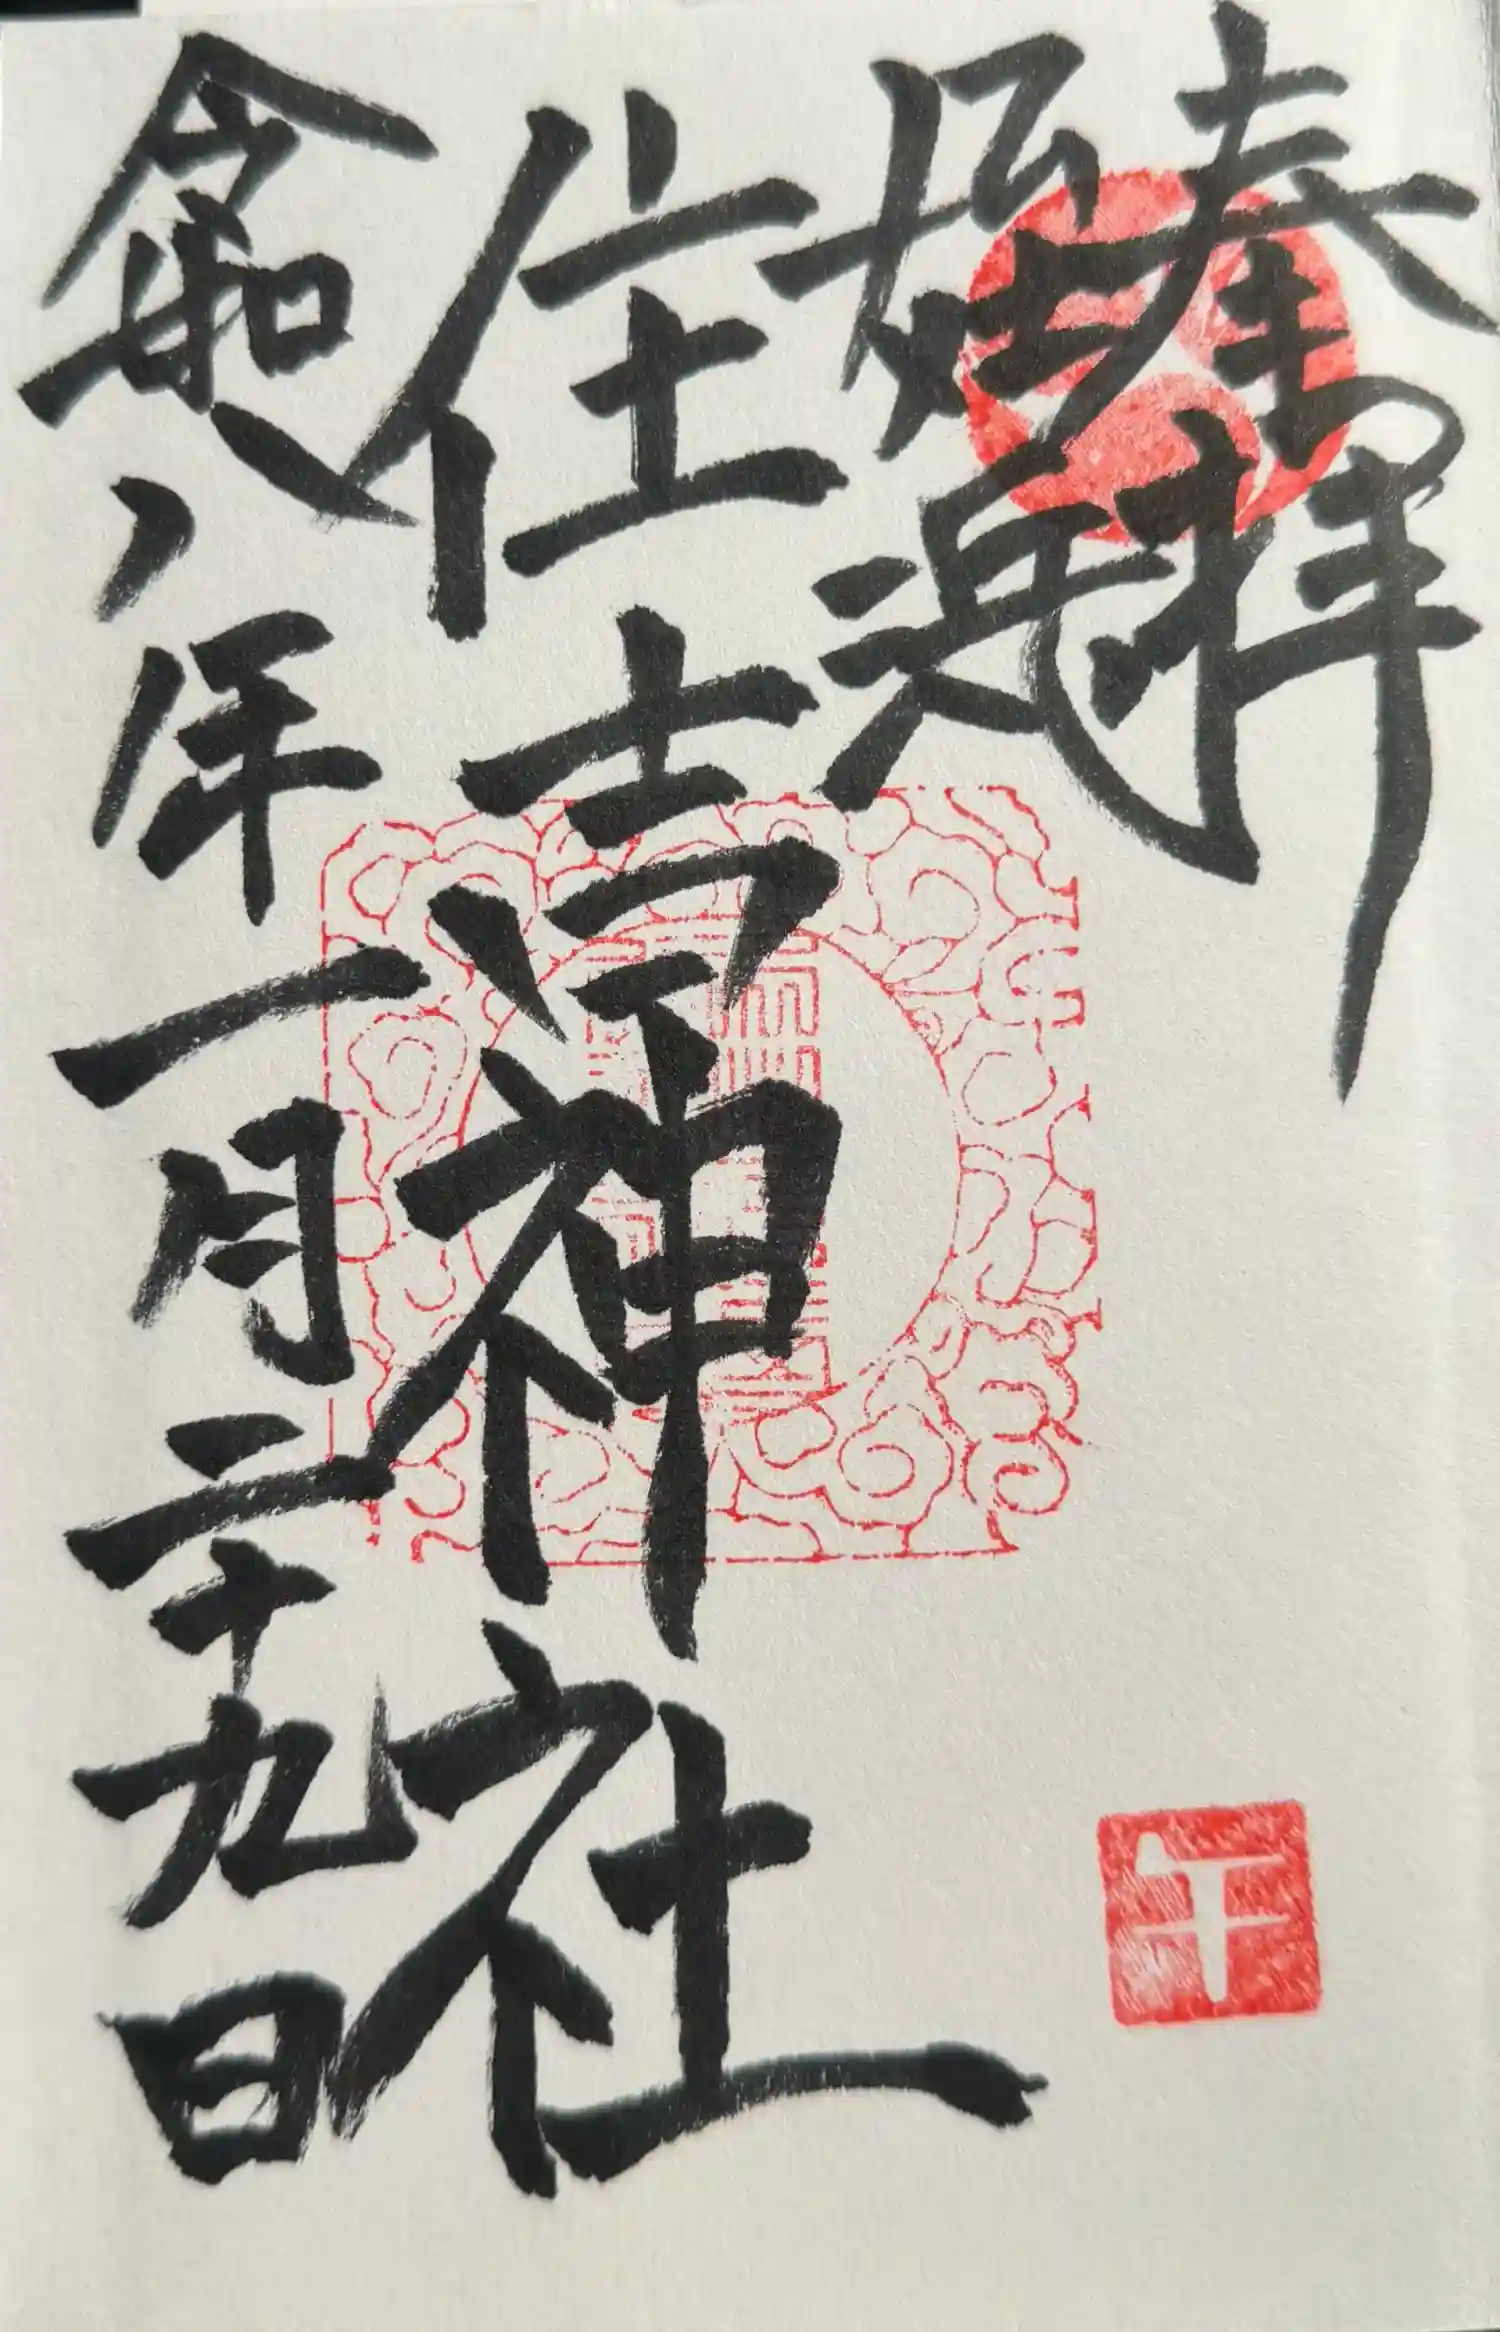 奉拝
住吉神社
令和八年一月二十九日
午